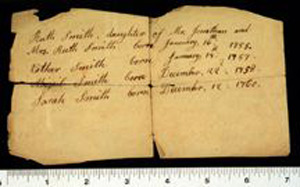 Ruth Smith, daughter of Mr. Jonathan and
Mrs. Ruth Smith born January, 16th 1755.
Esther Smith born January, 1757.
Smith born December, 22, 1758.
Sarah Smith born December, 12, 1760.
1 2 3 4 5 6 7